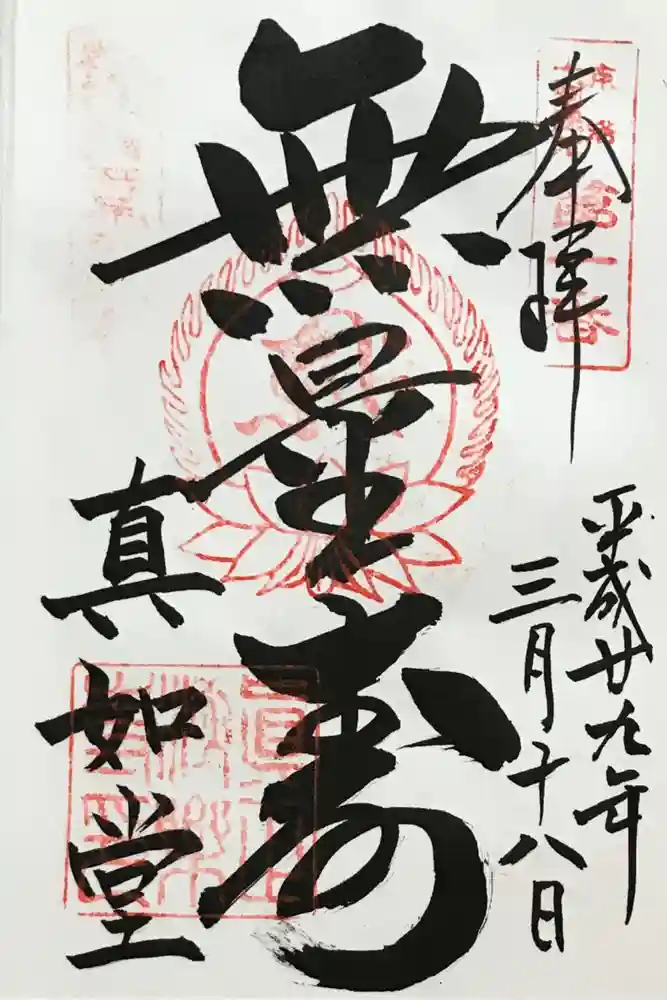 奉拝
平成廿九年
三月十八日
無量壽
真如堂